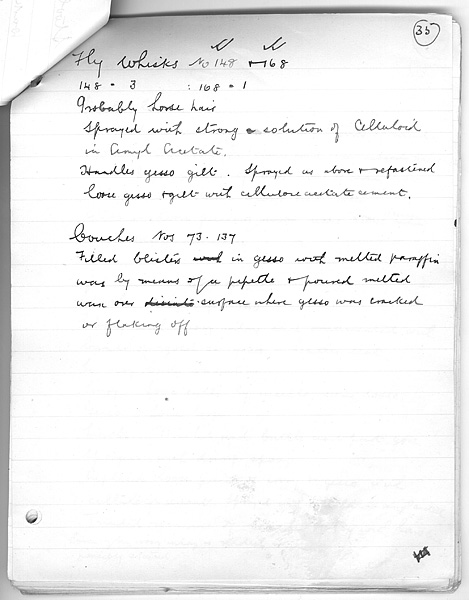 35
Fly Whisks No 148 + 168
148 = 3 : 168 = 1
Probably horse hair
Sprayed with strong solution of Celluloid
in Amyl Acetate.
Handles gesso gilt. Sprayed as above & refastened
loose gesso & gilt with cellulose acetate cement.
Couches Nos 73. 137
Filled blisters in gesso with melted paraffin
wax by means of a pipette & poured melted
wax over surface where gesso was cracked
or flaking off